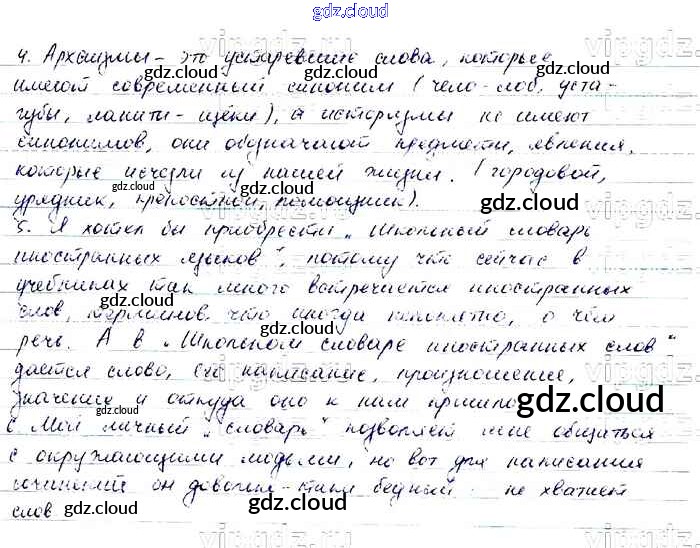 gdz.cloud
4. Архаизмы – это устаревшие слова, которые
имеют современный синоним (чело-лоб, уста-
губы, ланиты - щёки), а историзмы не имеют
синонимов, они обозначают предметы, явления,
которые исчезли из нашей жизни. (городовой,
урядник, крепостной, помощник).
5. Я хотел бы приобрести „Школьный словарь
иностранных языков", потому что сейчас в
учебниках так много встречается иностранных
слов, терминов что иногда непонятно, о чём
речь. А в „Школьном словаре иностранных слов"
даётся слово, его написание, произношение,
значение и откуда оно к нам пришло
6 Мой личный „словарь" позволяет мне общаться
с окружающими людьми, но вот для написания
сочинений он довольно-таки бедный. не хватает
слов
gdz.cloud
gdz.cloud
gdz.cloud
gdz.cloud
gdz.cloud
gdz.cloud
gdz.cloud
gdz.cloud
gdz.cloud
gdz.cloud
gdz.cloud
gdz.cloud
gdz.cloud
gdz.cloud
vipgdz.ru